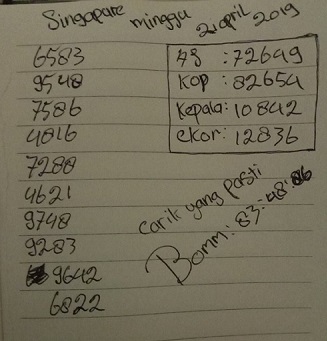 Singapare minggu 21 april 2019
6583
9548
7586
4816
7288
4621
9748
9283
9642
6822
as : 72649
kop : 82654
kepala: 10842
ekor: 12836
carik yang pasti
Bomm: 83:48:86